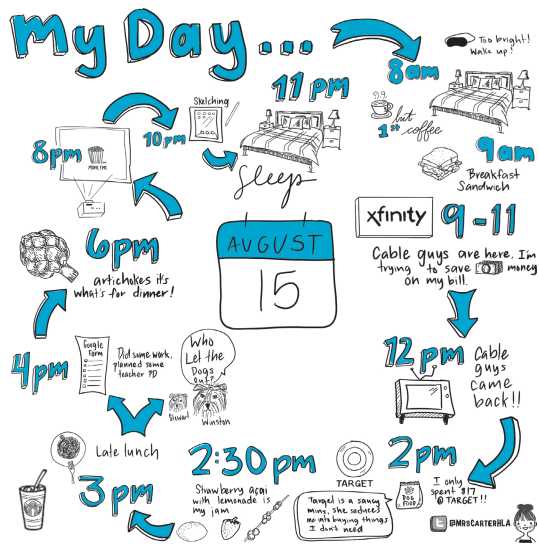 My Day...
8am
Too bright!
Wake up!
but
1st coffee
9am
Breakfast
Sandwich
xfinity
9-11
Cable guys are here. I'm
trying to save money
on my bill.
12pm
Cable
guys
came
back!!
2pm
I only
spent $17
@ TARGET!!
DOG
FOOD
TARGET
Target is a saucy
minx, she seduces
me into buying things
I don't need
@MRSCARTERHLA
2:30pm
Strawberry açai
with lemonade is
my jam
3pm
Late lunch
4pm
Google
Form
Did some work,
planned some
teacher PD
Who
Let the
Dogs
out?
Stewart
Winston
6pm
artichokes it's
what's for dinner!
8pm
MOVIE TIME
10pm
Sketching
11pm
Sleep
AUGUST
15